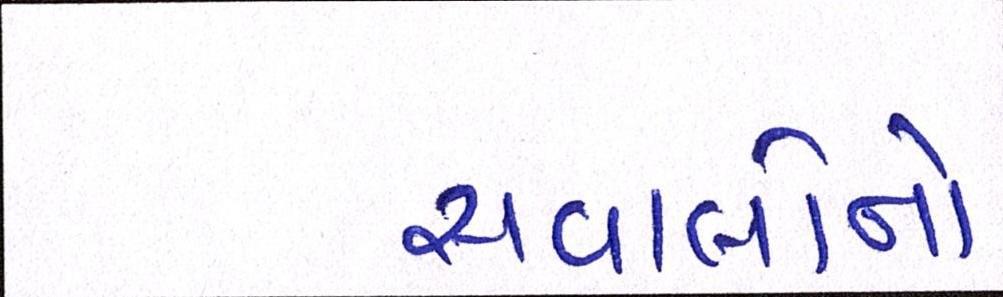 સવાલોનો